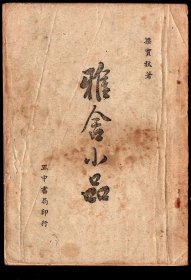 梁實秋著
雅舍小品
正中書局印行